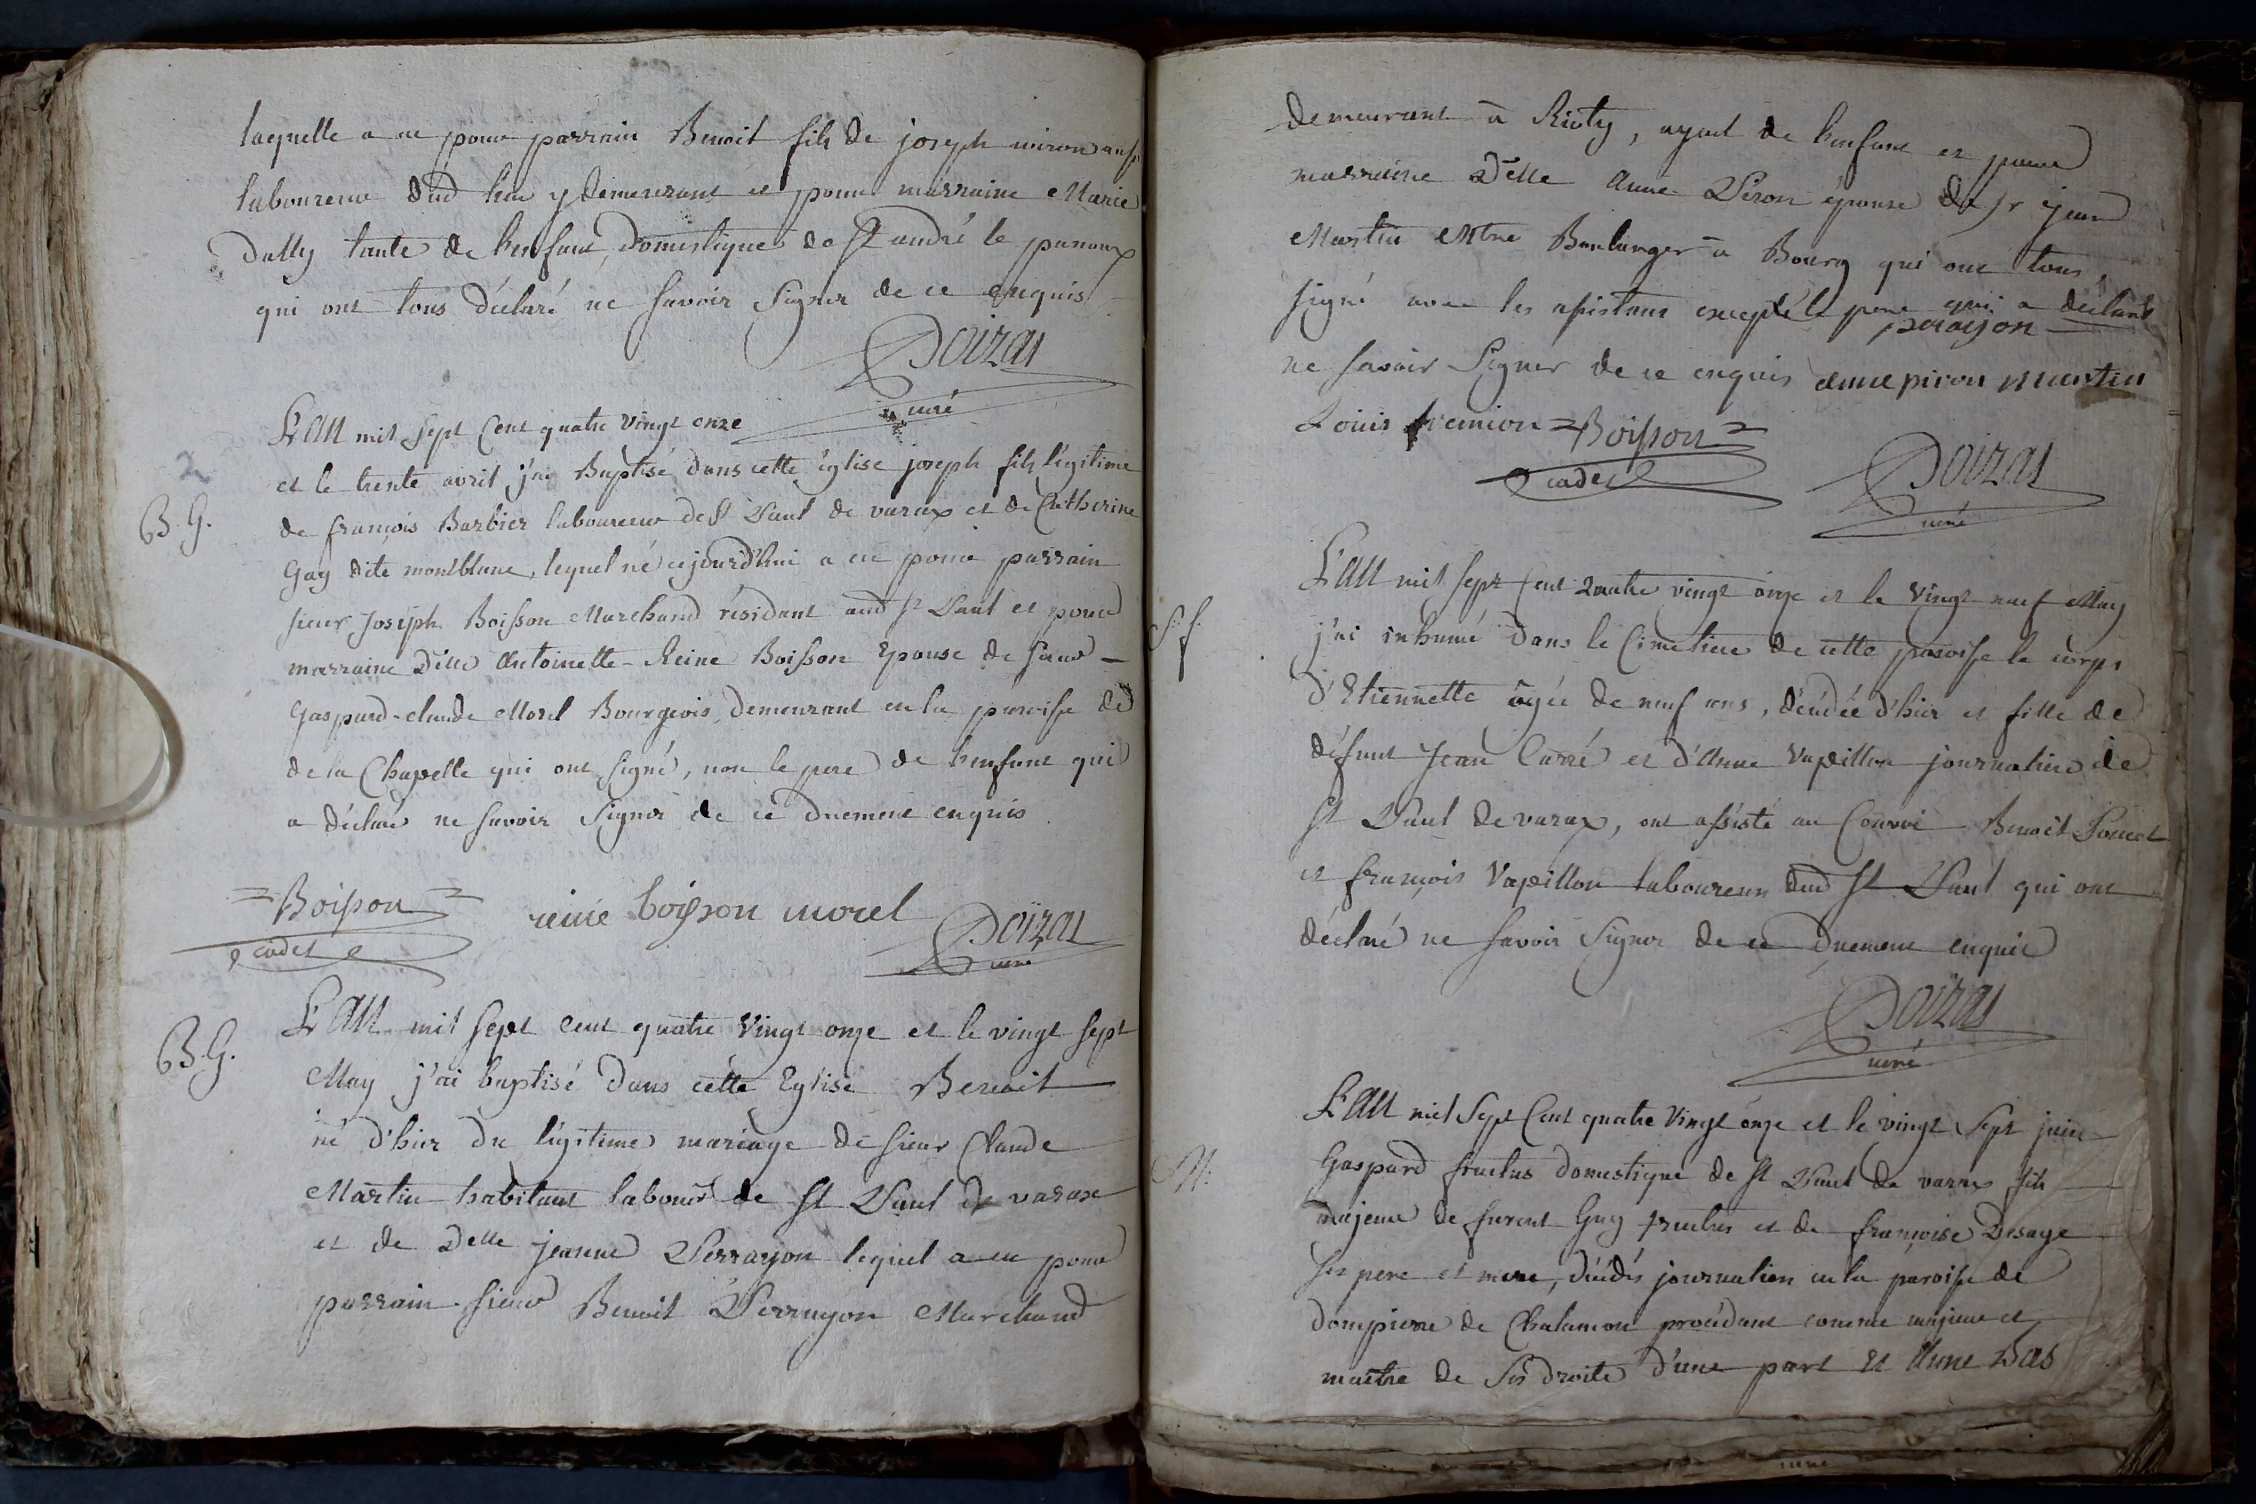 laquelle a eu pour parrain Benoit fils de joseph miron aussi
laboureur dud lieu y demeurant et pour marraine Marie
Dully tante de l'enfant, domestique de St andré le panoux
qui ont tous déclaré ne savoir signer de ce enquis
Doizat
curé
2
B. G.
L'an mil sept Cent quatre vingt onze
et le trente avril j'ai Baptisé dans cette église joseph fils légitime
de françois Barbier laboureur de St Paul de varax et de Catherine
Gay dite montblanc, lequel né cejourd'hui a eu pour parrain
sieur Joseph Boisson Marchand résidant aud St Paul et pour
marraine Delle Antoinette-Reine Boisson Epouse de sieur
Gaspard-claude Morel Bourgeois, demeurant en la paroisse de
de la Chapelle qui ont signé, non le pere de l'enfant qui
a déclaré ne savoir signer de ce duement enquis
=Boisson=
cadet
reine boisson morel
Doizat
curé
B. G.
L'an mil sept cent quatre vingt onze et le vingt sept
May j'ai baptisé dans cette Eglise Benoit
né d'hier du légitime mariage de sieur Claude
Martin habitant labour de St Paul de varax
et de Delle jeanne Perrayon lequel a eu pour
parrain sieur Benoit Perrayon Marchand
demeurant à Rioty, ayeul de l'enfant et pour
marraine Delle Anne Piron épouse de sr jean
Martin Mtre Boulanger à Bourg qui ont tous
signé avec les assistans excepté le pere qui a déclaré
perayon
ne savoir signer de ce enquis anne piron martin
Louis fremion =Boisson=
cadet
Doizat
curé
S. f.
L'an mil sept Cent quatre vingt onze et le vingt neuf May
j'ai inhumé dans le Cimetiere de cette paroisse le corps
d'Etiennette âgée de neuf ans, décédée d'hier et fille de
défunt Jean Carré et d'Anne Vapillon journaliere de
St Paul de varax, ont assisté au Convoi Benoit Poncet
et françois Vapillon laboureurs dud St Paul qui ont
déclaré ne savoir signer de ce duement enquis
Doizat
curé
M.
L'an mil sept Cent quatre vingt onze et le vingt sept juin
Gaspard fructus domestique de St Paul de varax fils
majeur de furent Guy fructus et de françoise Desaye
ses pere et mere, décédés journaliers en la paroisse de
dompierre de Chalamon procédant comme majeur et
maître de ses droits d'une part et Anne Bas